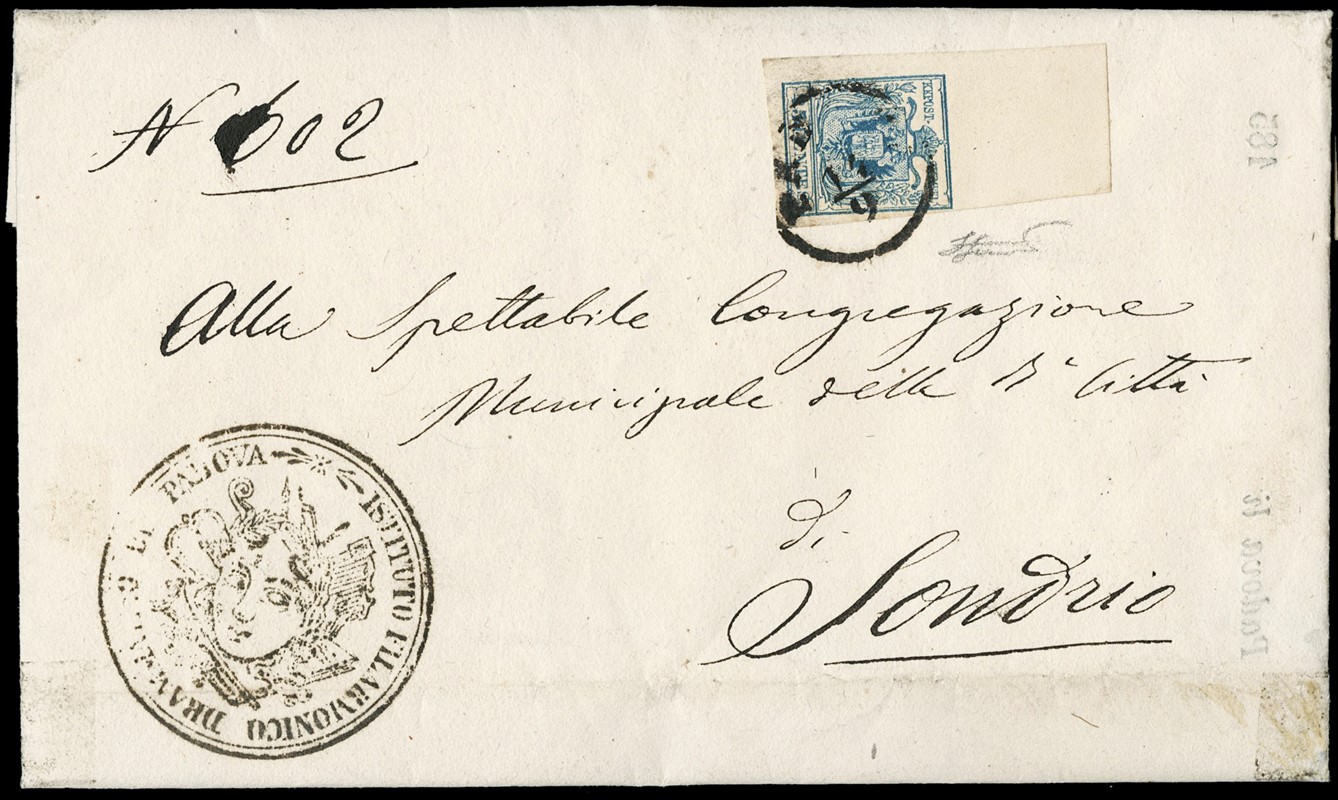 N 602
KKPOST-
17/9
185
Alla Spettabile Congregazione
Municipale della Rª Città
di
Sondrio
ISTITUTO FILARMONICO DRAMMATICO DI PADOVA
Padova li